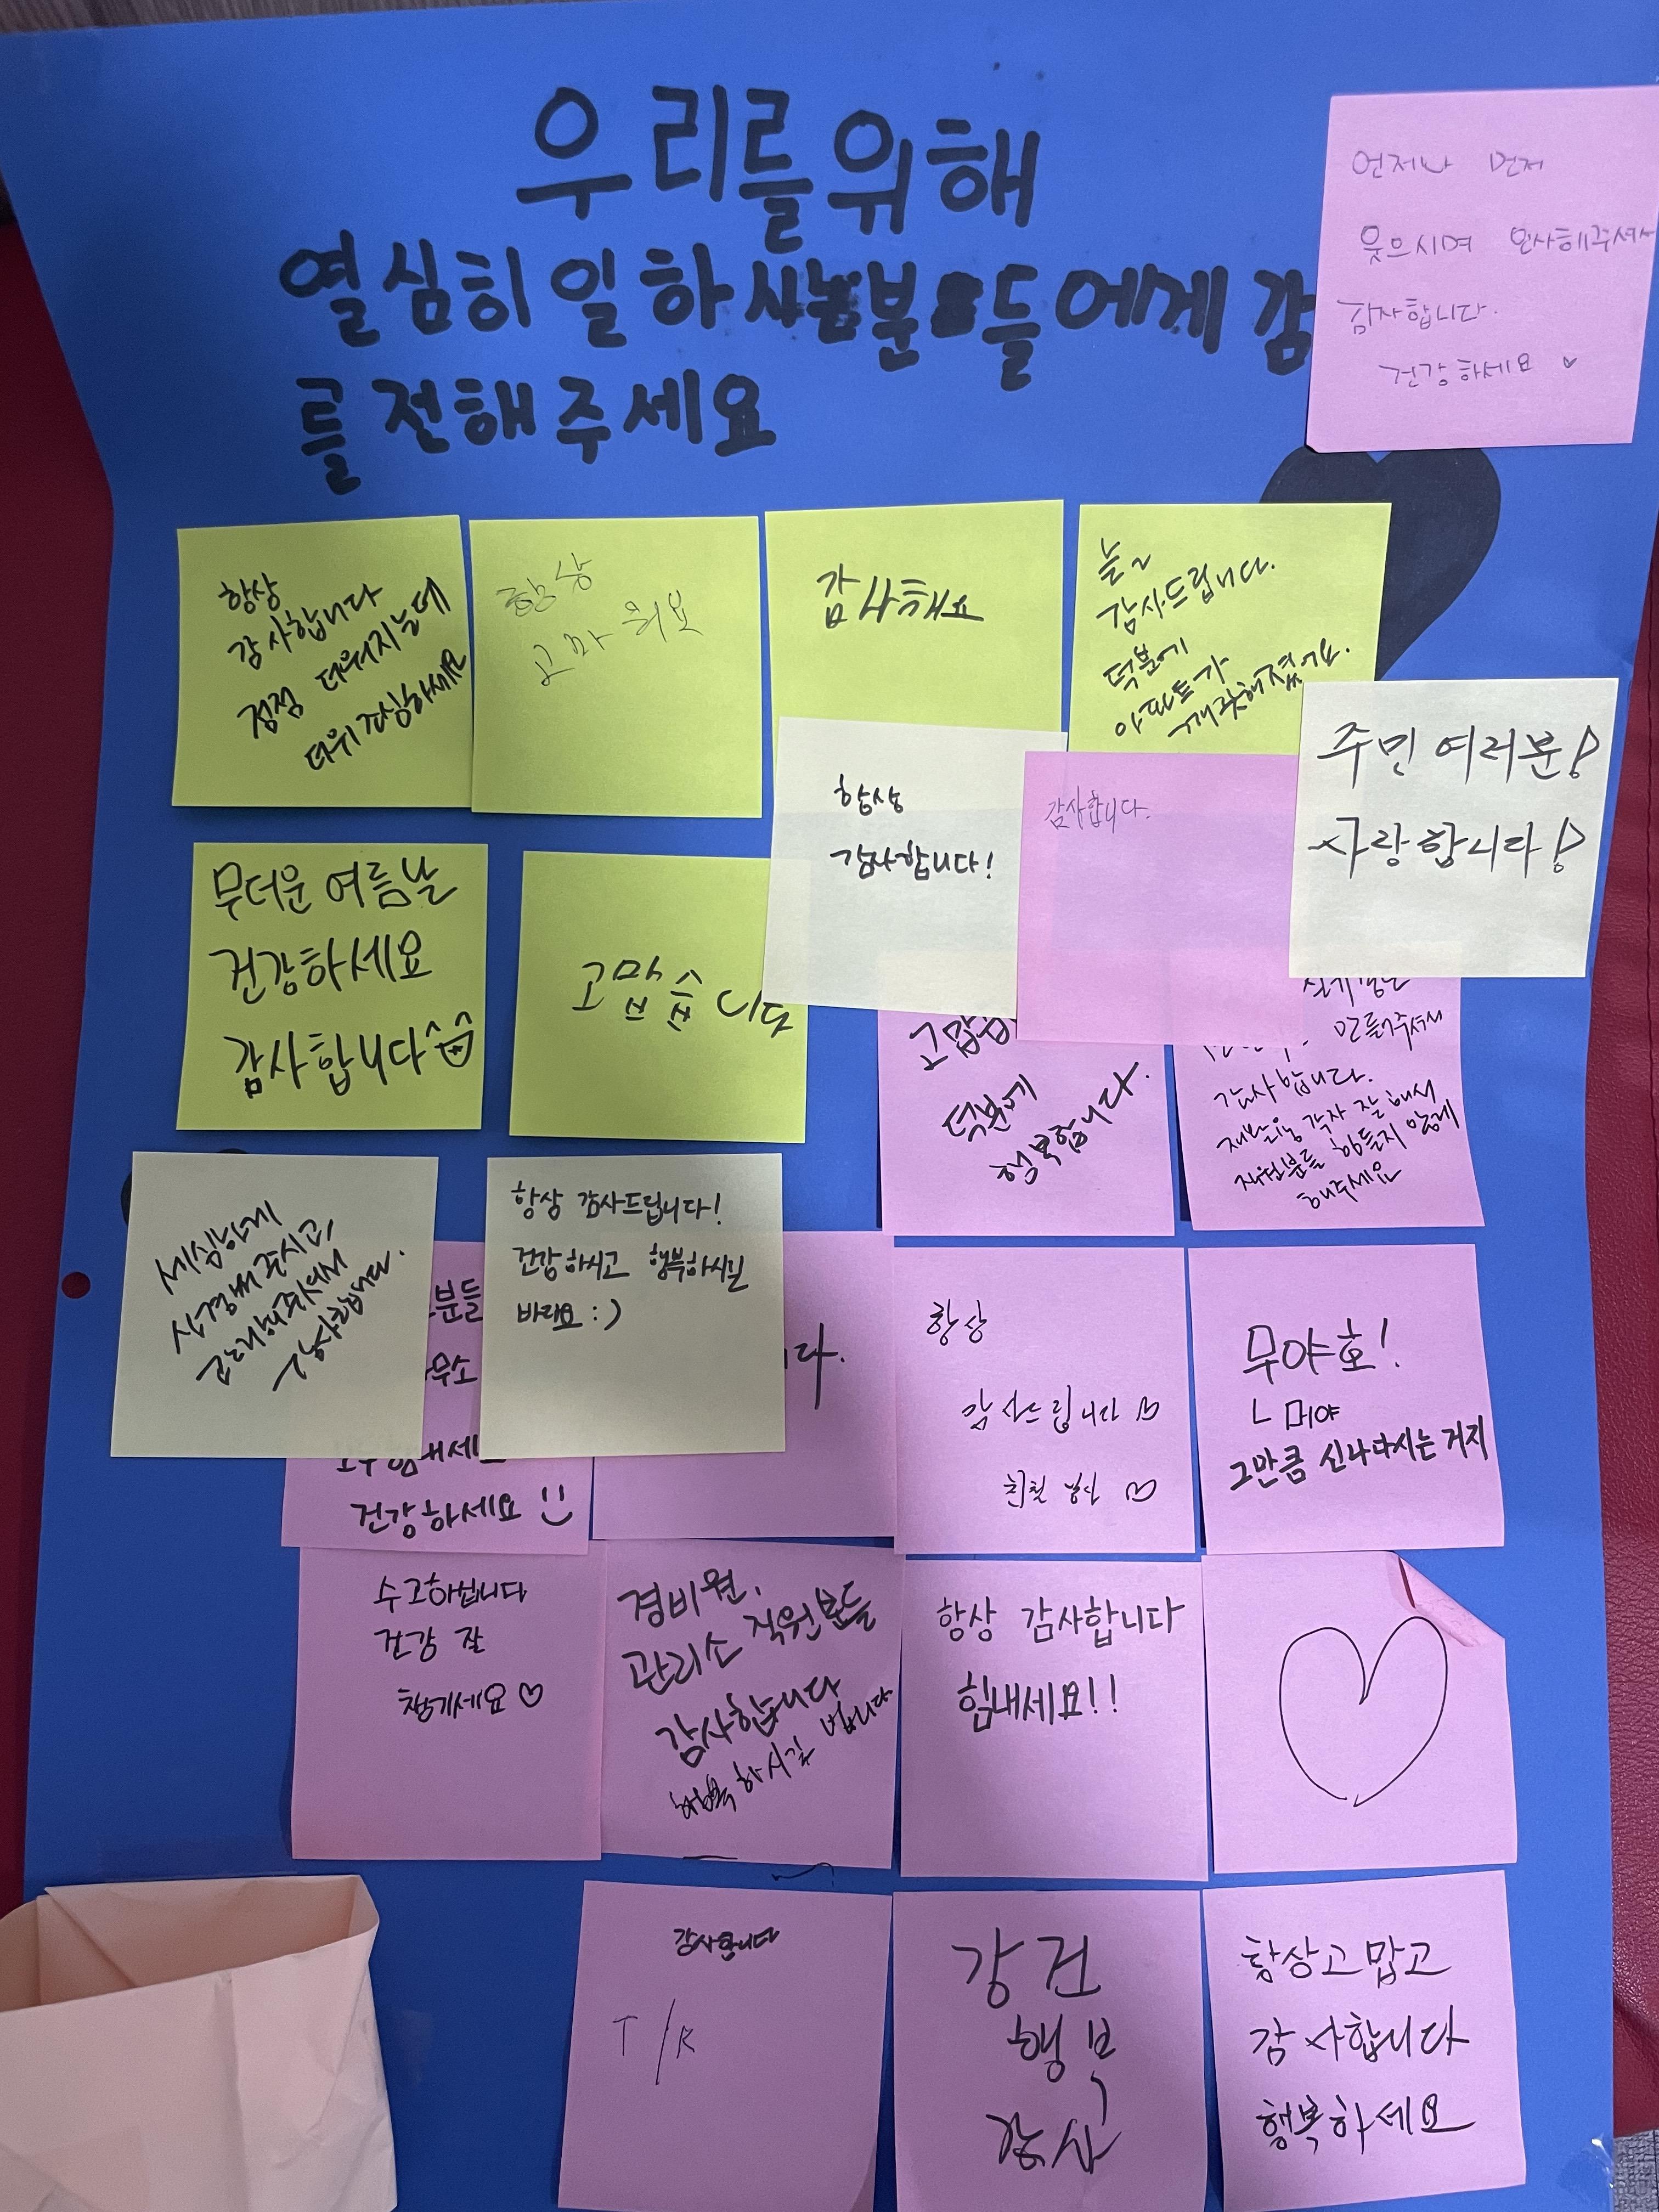 우리를 위해
열심히 일하시는 분들에게 감
를 전해주세요
언제나 먼저
웃으시며 인사해주셔서
감사합니다.
건강하세요 ♡
항상
감사합니다
점점 더워지는데
더위 조심하세요
항상
고마워요
감사해요
늘~
감사드립니다.
덕분에
아파트가
깨끗해졌어요.
항상
감사합니다!
감사합니다.
주민 여러분!
사랑합니다!
무더운 여름날
건강하세요
감사합니다^^
고맙습니다
고맙습
덕분에
행복합니다.
만들어주셔서
감사합니다.
재활용 각자 잘 해서
직원분들 힘들지 않게
해주세요
세심하게
신경써 주시고,
고려해주셔서
감사합니다.
항상 감사드립니다!
건강하시고 행복하시길
바래요 :)
분들
무소
힘내세요
건강하세요
다.
항상
감사드립니다 ♡
무야호!
ㄴ 뭐야
그만큼 신나시는 거지
수고하십니다
건강 잘
챙기세요 ♡
경비원,
관리소 직원분들
감사합니다
행복하시길 빕니다
항상 감사합니다
힘내세요!!
감사합니다
T/R
강건
행복
감사
항상 고맙고
감사합니다
행복하세요